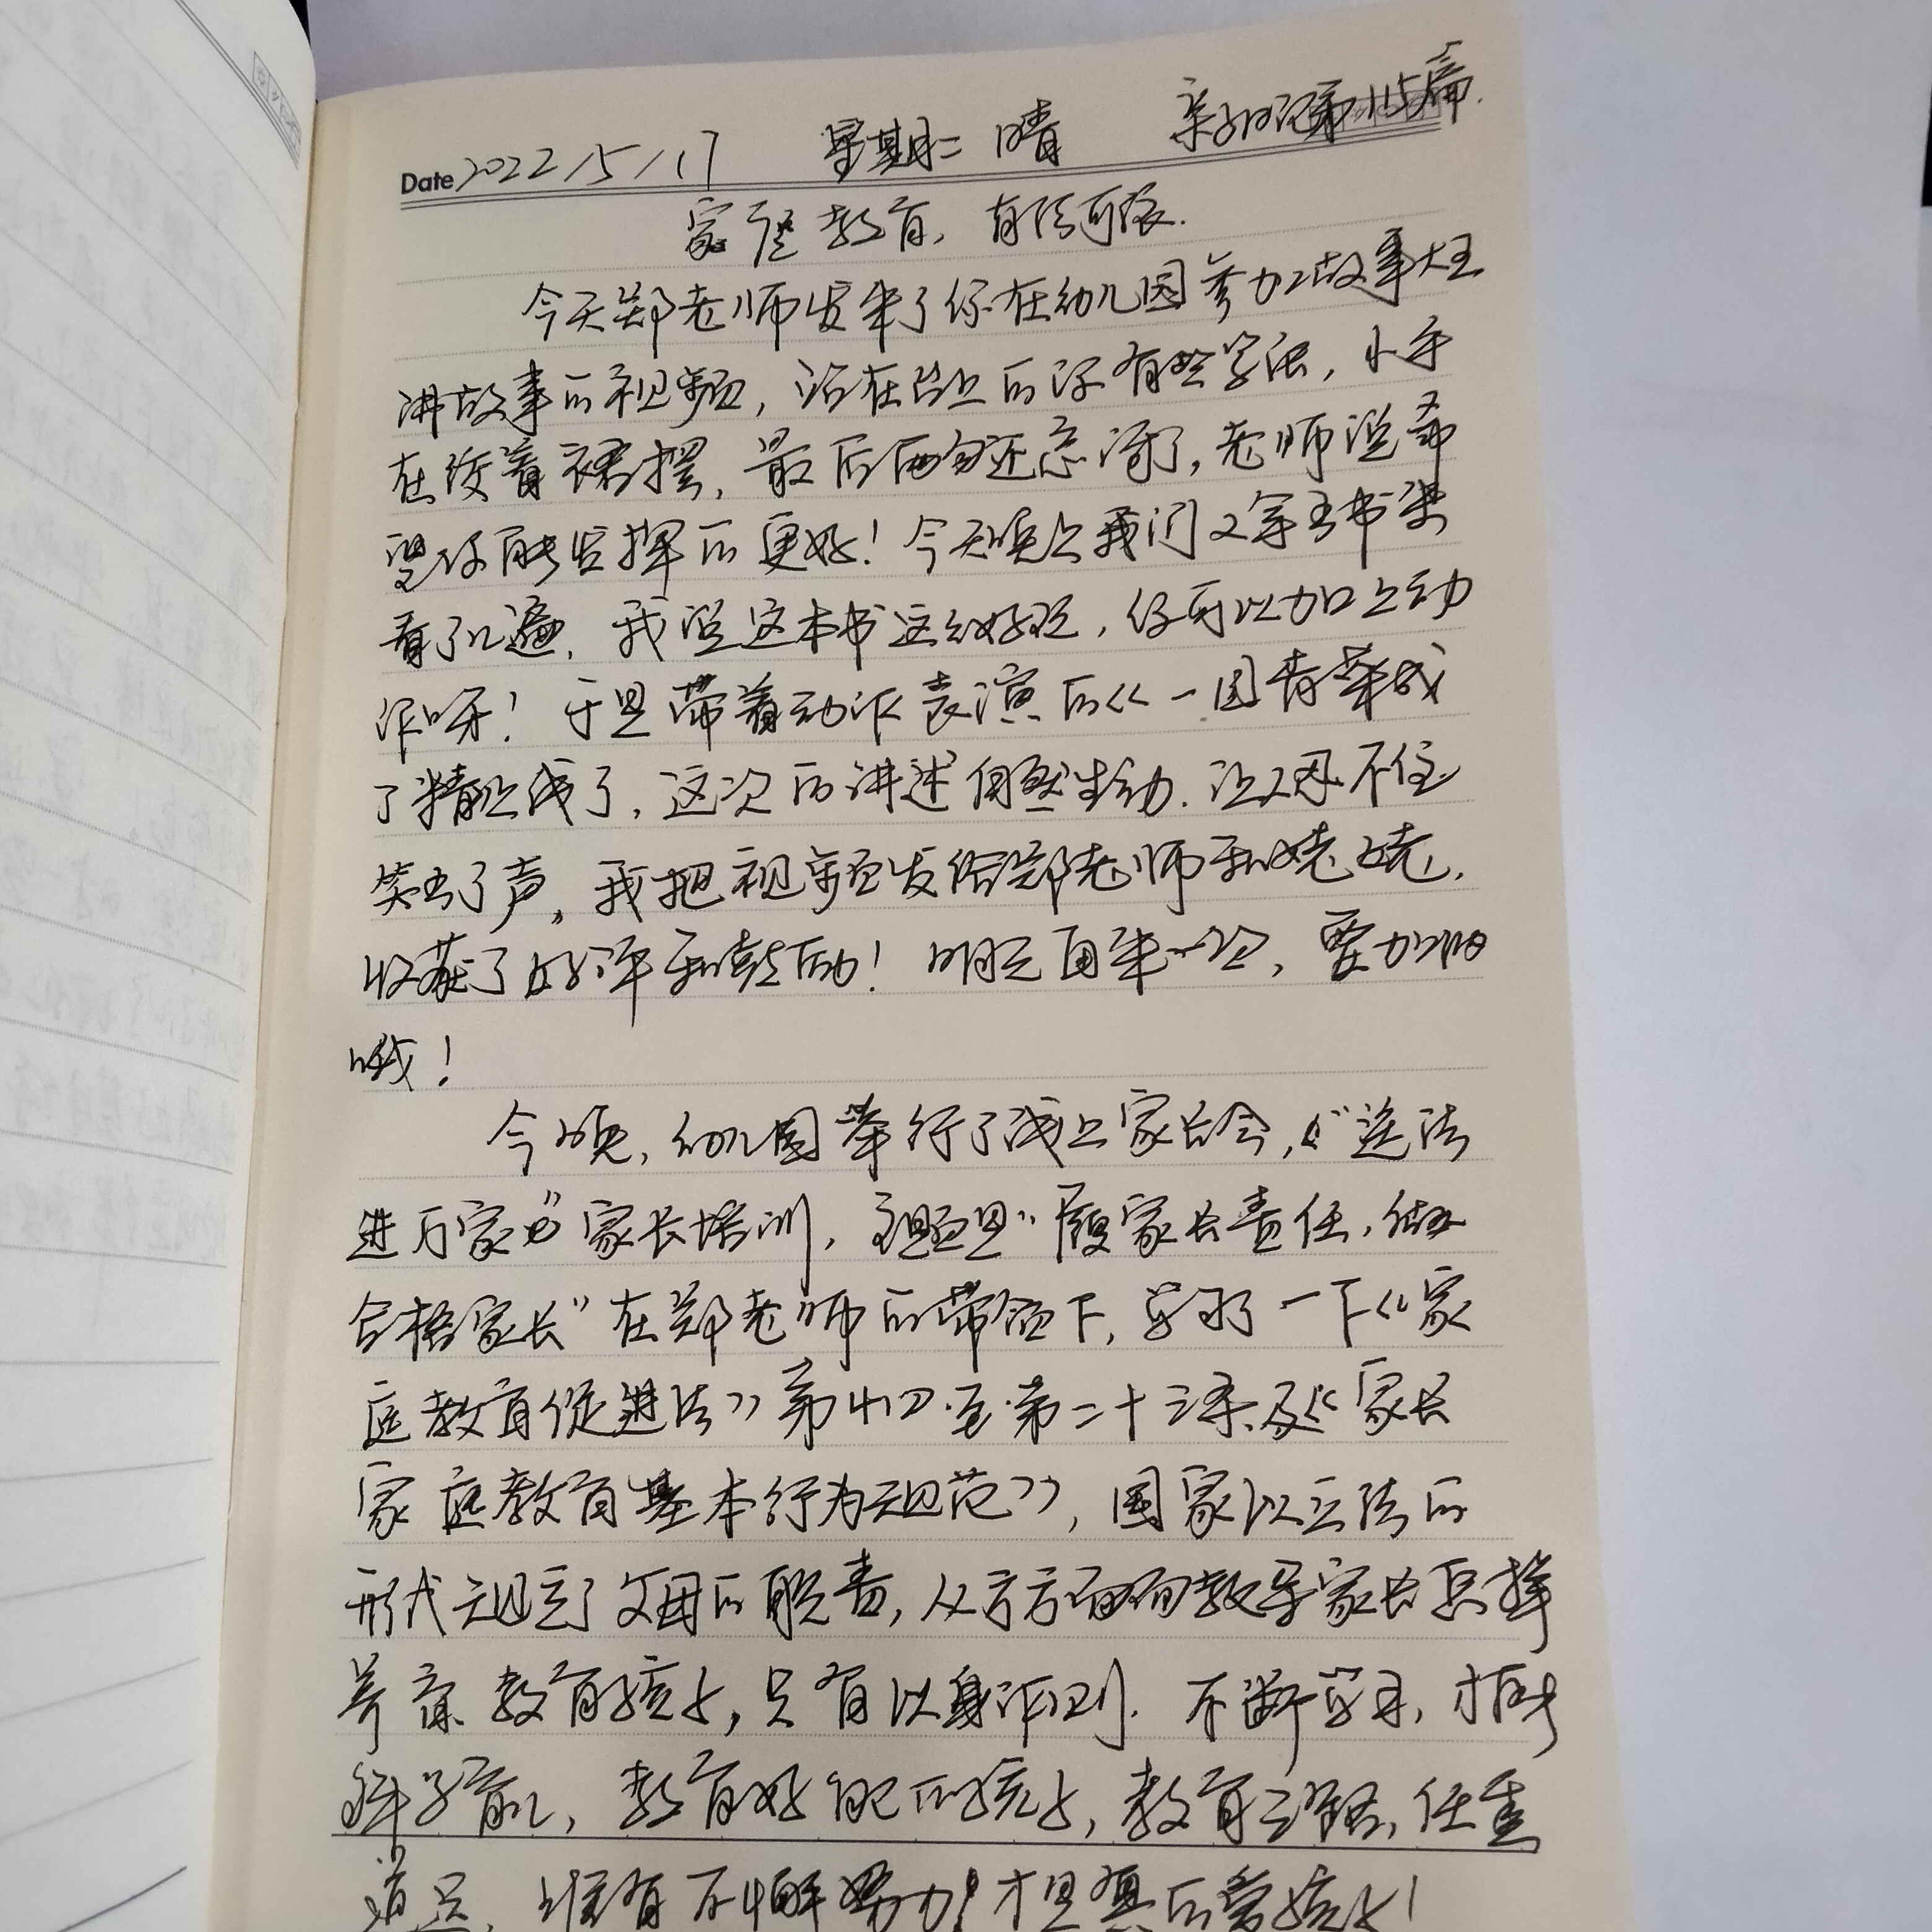 Date 2022/5/17 星期二 晴 亲子日记第115篇.
家庭教育，有法可依.
今天郑老师发来了你在幼儿园参加故事大王
讲故事的视频，站在台上的你有些紧张，小手
在绞着裙摆，最后两句还忘词了，老师说希
望你能发挥的更好！今天晚上我们又拿出书来
看了几遍，我说这本书这么好玩，你可以加上动
作呀！于是带着动作表演的《一园青菜成
了精》上线了，这次的讲述自然生动，让人忍不住
笑出了声，我把视频发给郑老师和姥姥，
收获了好评和鼓励！明天再来一次，要加油
哦！
今晚，幼儿园举行了线上家长会，"送法
进万家"家长培训，主题是"履家长责任，做
合格家长"在郑老师的带领下，学习了一下《家
庭教育促进法》第十四至第二十三条及《家长
家庭教育基本行为规范》，国家以立法的
形式规定了父母的职责，从方方面面教导家长怎样
养育教育孩子，只有以身作则，不断学习，才能
科学育儿，教育好自己的孩子，教育之路，任重
道远，唯有不懈努力！才是真的爱孩子！